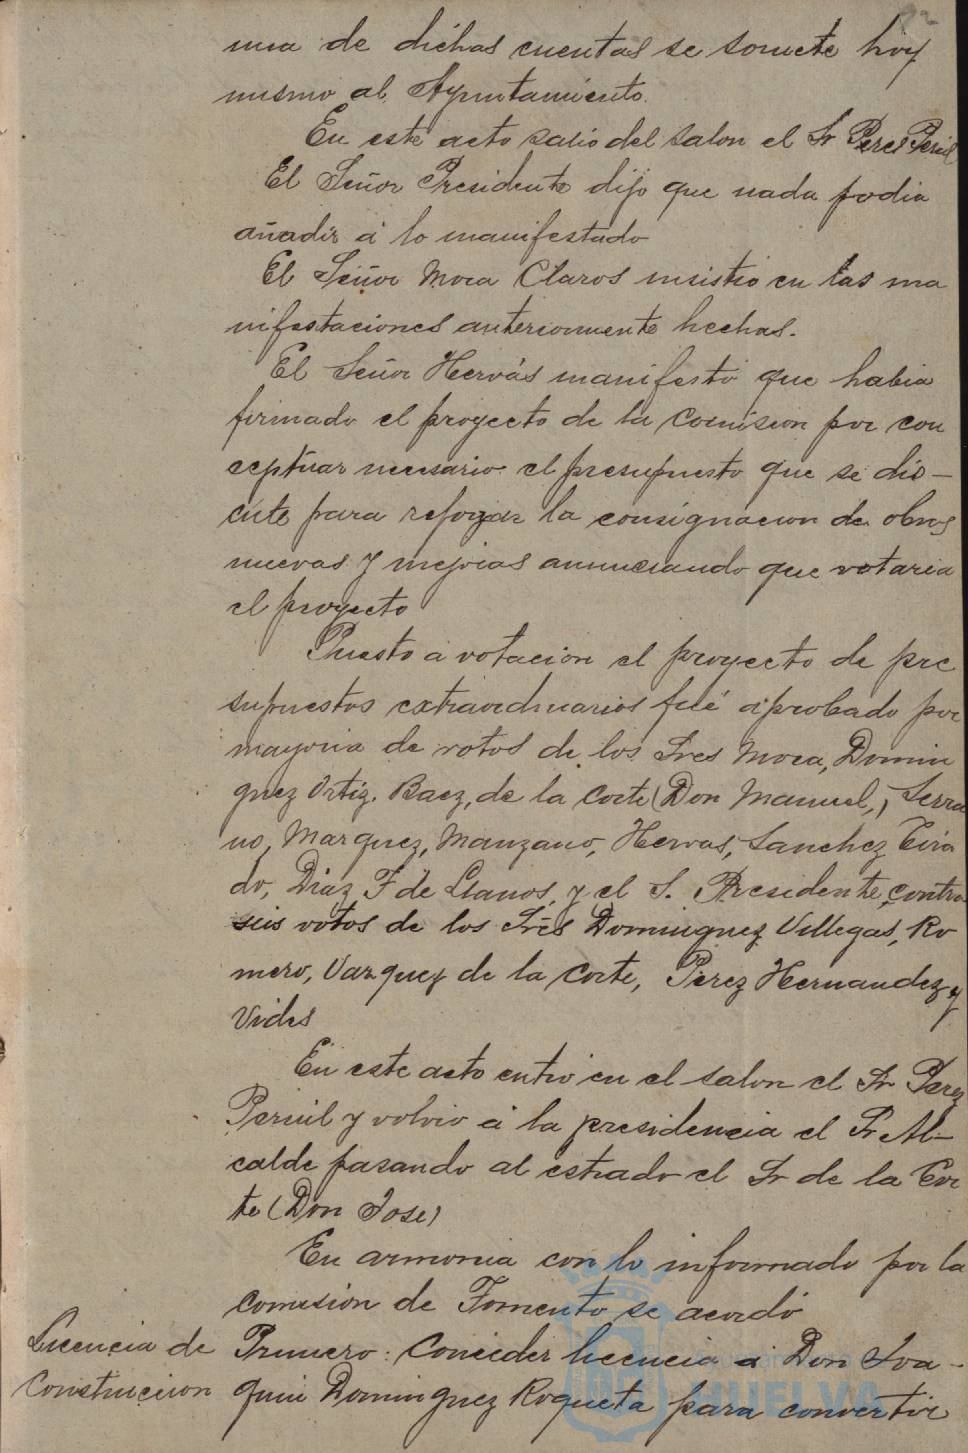 una de dichas cuentas se somete hoy
mismo al Ayuntamiento.
En este acto salio del salon el Sr Perez Pernil
El Señor Presidente dijo que nada podia
añadir á lo manifestado
El Señor Mora Claros insistio en las ma
nifestaciones anteriormente hechas.
El Señor Hervás manifestó que habia
firmado el proyecto de la Comision por con
ceptuar necesario el presupuesto que se dis-
cute para reforzar la consignacion de obras
nuevas y mejoras anunciando que votaria
el proyecto
Puesto a votacion el proyecto de pre
supuestos extraordinarios fué aprobado por
mayoria de votos de los Sres Mora, Domin
guez Ortiz, Baez, de la Corte (Don Manuel,) Serra
no, Marquez, Manzano, Hervas, Sanchez Tira
do, Diaz F de Llanos, y el S. Presidente, contra
seis votos de los Sres Dominguez Villegas, Ro
mero, Vazquez de la Corte, Perez Hernandez y
Vides
En este acto entro en el salon el Sr Perez
Pernil y volvio á la presidencia el Sr Al-
calde pasando al estrado el Sr de la Cor
te (Don Jose)
En armonia con lo informado por la
Comision de Fomento se acordó
Licencia de
Construccion
Primero: Conceder licencia á Don Joa-
quin Dominguez Roqueta para convertir
HUELVA